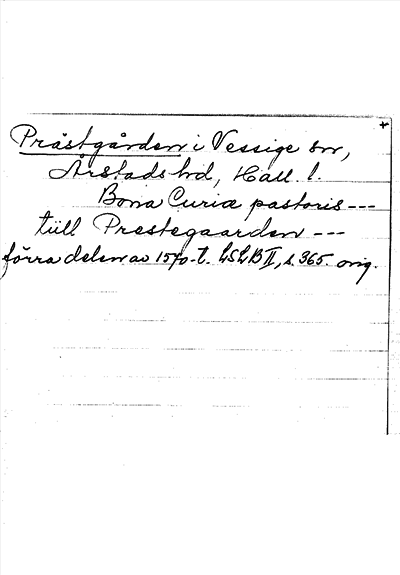 Prästgården i Vessige sn,
Årstads hd, Hall. l.
Bona Curiæ pastoris ---
tüll Prestegaarden ---
förra delen av 1570-t. LSLB II, s. 365. orig.